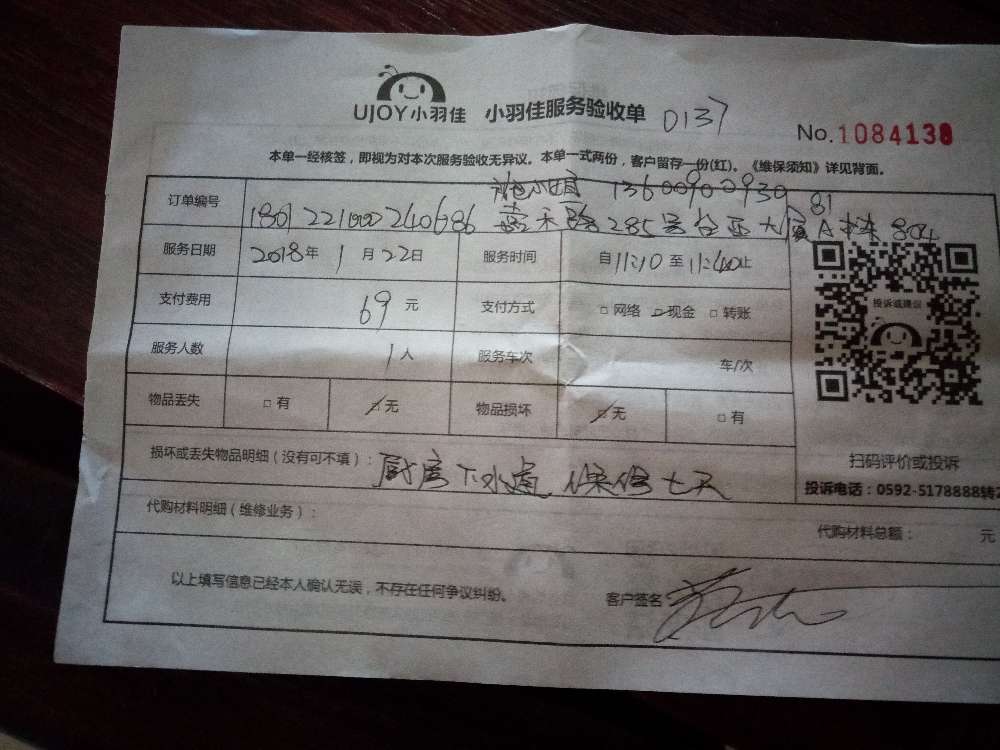 UJOY小羽佳 小羽佳服务验收单 0137
No.1084138
本单一经核签，即视为对本次服务验收无异议。本单一式两份，客户留存一份(红)。《维保须知》详见背面。
13600900930
81
订单编号 1801221000240686 嘉禾路285号台亚大厦A栋804
服务日期 2018年 1 月 22日 服务时间 自11:10至11:40止
支付费用 69 元 支付方式 □网络 □现金 □转账
服务人数 1人 服务车次 车/次
投诉或建议
物品丢失 □有 □无 物品损坏 □无 □有
损坏或丢失物品明细（没有可不填）：厨房下水道 保修七天
扫码评价或投诉
投诉电话：0592-5178888转2
代购材料明细（维修业务）：
代购材料总额： 元
以上填写信息已经本人确认无误，不存在任何争议纠纷。 客户签名